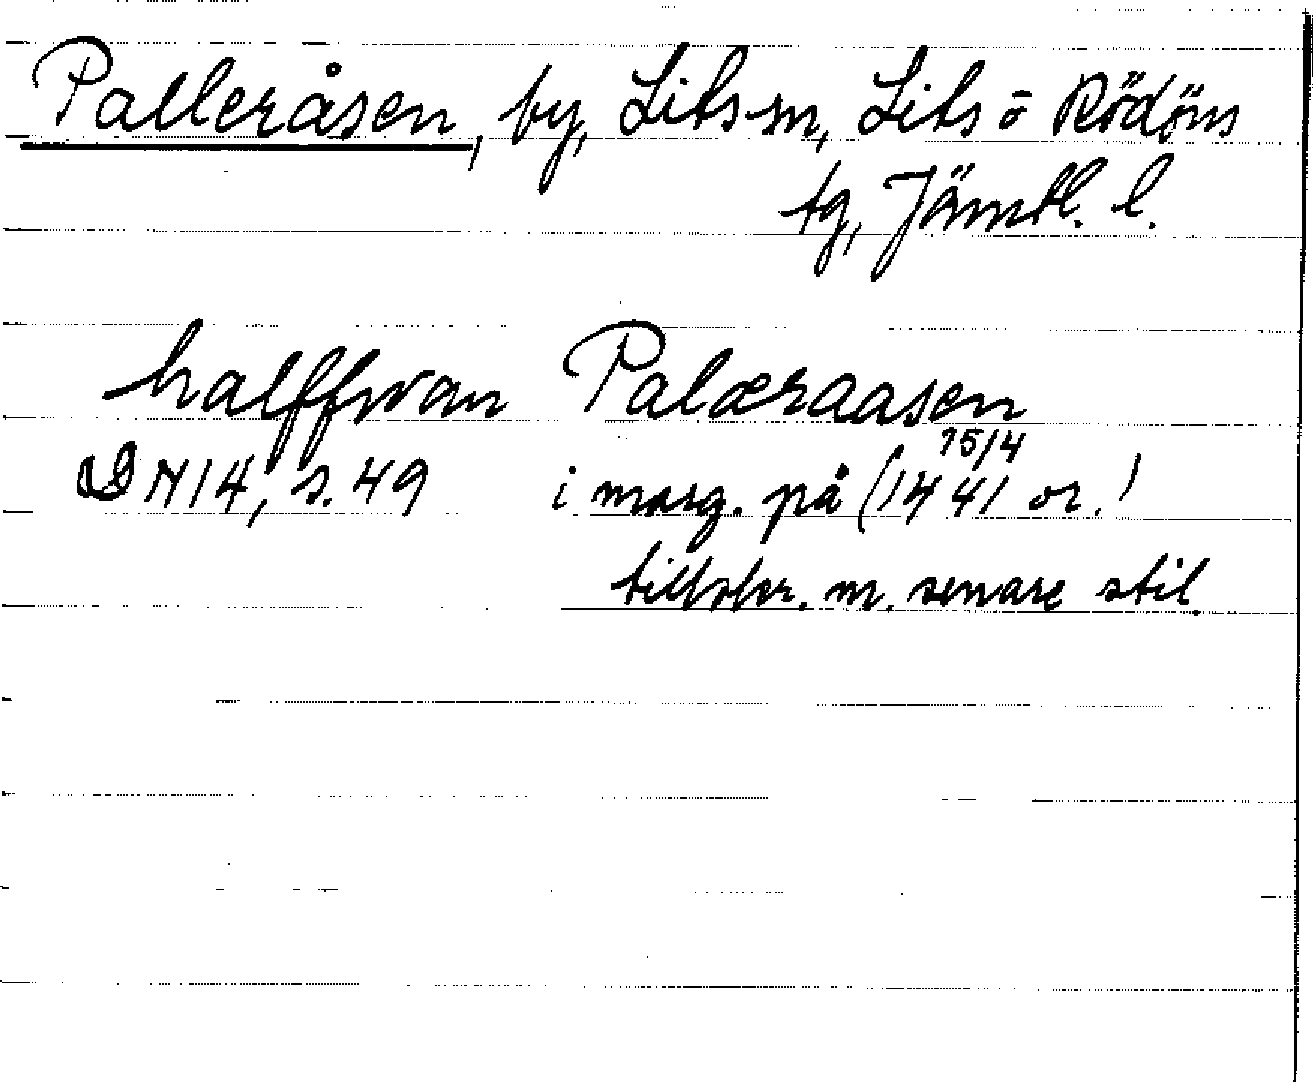 Palleråsen, by, Lits sn, Lits o Rödöns
tg, Jämtl. l.
halffwan Palæraasen
DN 14, s. 49 i marg. på (15/4 1441 or.)
tillskr. m. senare stil